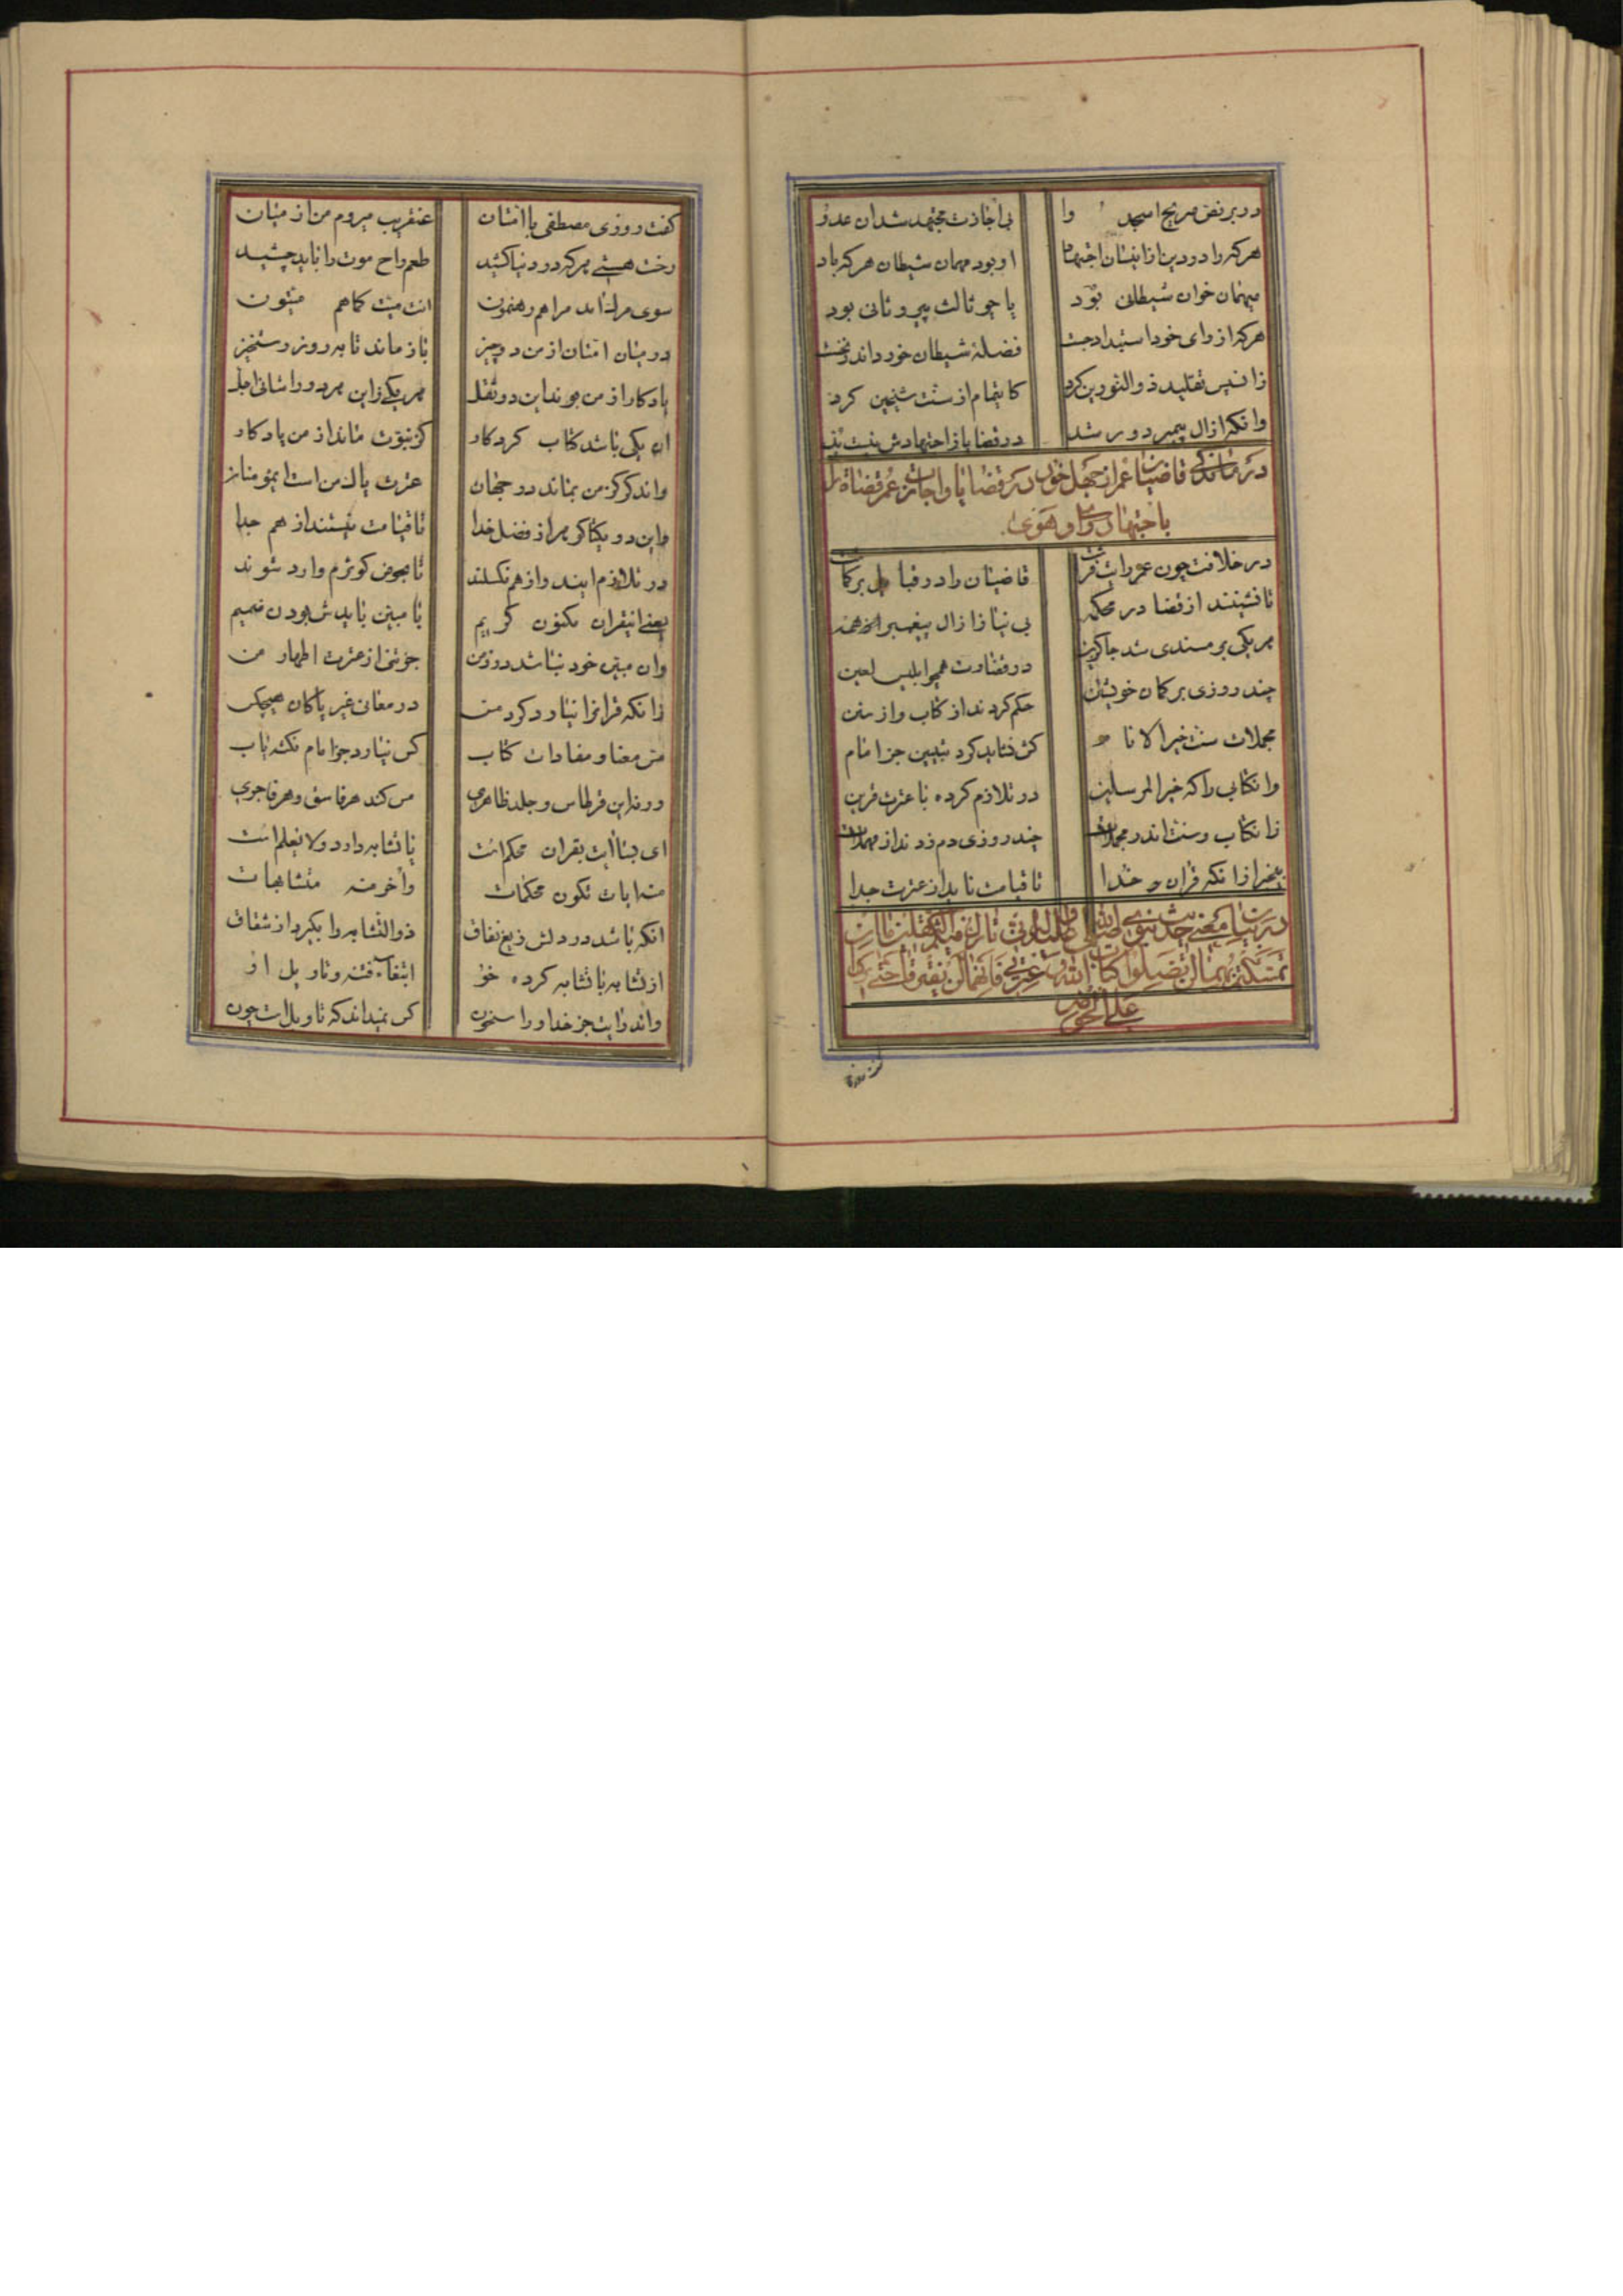 در بر نص صریح اسجدوا بی اجازت مجتهد شد ان عدو
هرکه را در دین از اینسان اجتهاد او بود مهمان شیطان هرکه باد
میهمان خوان شیطانی بود یا چو ثالث پیرو ثانی بود
هرکه از رای خود استبداد جست فضلهٔ شیطان خورد اند نخست
زانسپس تقلید ذوالنورین کرد کاینهام از سنت شیخین کرد
وانکه از ال پیمبر دور شد در قضایا از اجتهادش نیست بد
در درماندگی قاضیان عمر از جهل خود در قضایا و اجازت عمر قضاة را
باجتهاد و رای و هوی
در خلافت چون عمر رایت فراشت قاضیان را در قبایل برگماشت
تا نشینند از قضا در محکمه بی نیاز از ال پیغمبر همه
هر یکی بر مسندی شد جاگزین در قضاوت همچو ابلیس لعین
چند روزی بر کمان خویشتن حکم کردند از کتاب و از سنن
مجملات سنت خیر الانام کش نتاید کرد تبیین جز امام
وانکتابی را که خیر المرسلین در تلازم کرده با عترت قرین
زانکتاب و سنت اندر مجملات چند روزی دم زدند از مهملات
بیخبر از انکه قران خدا تا قیامت ناید از عترت جدا
در بیان معنی حدیث نبوی صلی الله علیه و اله انی تارک فیکم الثقلین ما ان
تمسکتم بهما لن تضلوا کتاب الله و عترتی فانهما لن یفترقا حتی یردا
علی الحوض
گفت روزی
گفت روزی مصطفی با امتان عنقریب میروم من از میان
رخت هستی هرکه در دنیا کشید طعم راح موت را باید چشید
سوی مرک امد مرا هم رهنمون انت میت کما هم میتون
در میان امتان از من دو چیز باز ماند تا به روز رستخیز
یادکار از من بوند این دو ثقل هر یکی زاین هر دو را شانی اجل
ان یکی باشد کتاب کردکار کز نبوت ماند از من یادکار
واندکر کز من بماند در جهان عترت پاک من است ایمؤمنان
واین دو یکتا کوهر از فضل خدا تا قیامت نیستند از هم جدا
در تلازم ایند و از هم نکسلند تا بحوض کوثرم وارد شوند
یعنی اینقران مکنون کریم با مبین بایدش بودن ضمیم
وان مبین خود نباشد در زمن جز تنی از عترت اطهار من
زانکه قرانرا نیاورد کرد مس در معانی غیر پاکان هیچکس
مس معنا و مفادات کتاب کس نیارد جز امام نکته یاب
ورنه این قرطاس و جلد ظاهری مس کند هر فاسق و هر فاجری
ای بسا ایت بقران محکم است یا تشابه دارد و لایعلم است
منه ایات تکون محکمات واخر منه متشابهات
انکه باشد در دلش زیغ نفاق ذوالتشابه را بگیرد از شقاق
از تشابه با تشابه کرده خو ابتغاء فتنه و تاویل او
واند رایت جز خدا و راسخون کس نمیداند که تاویلات چون